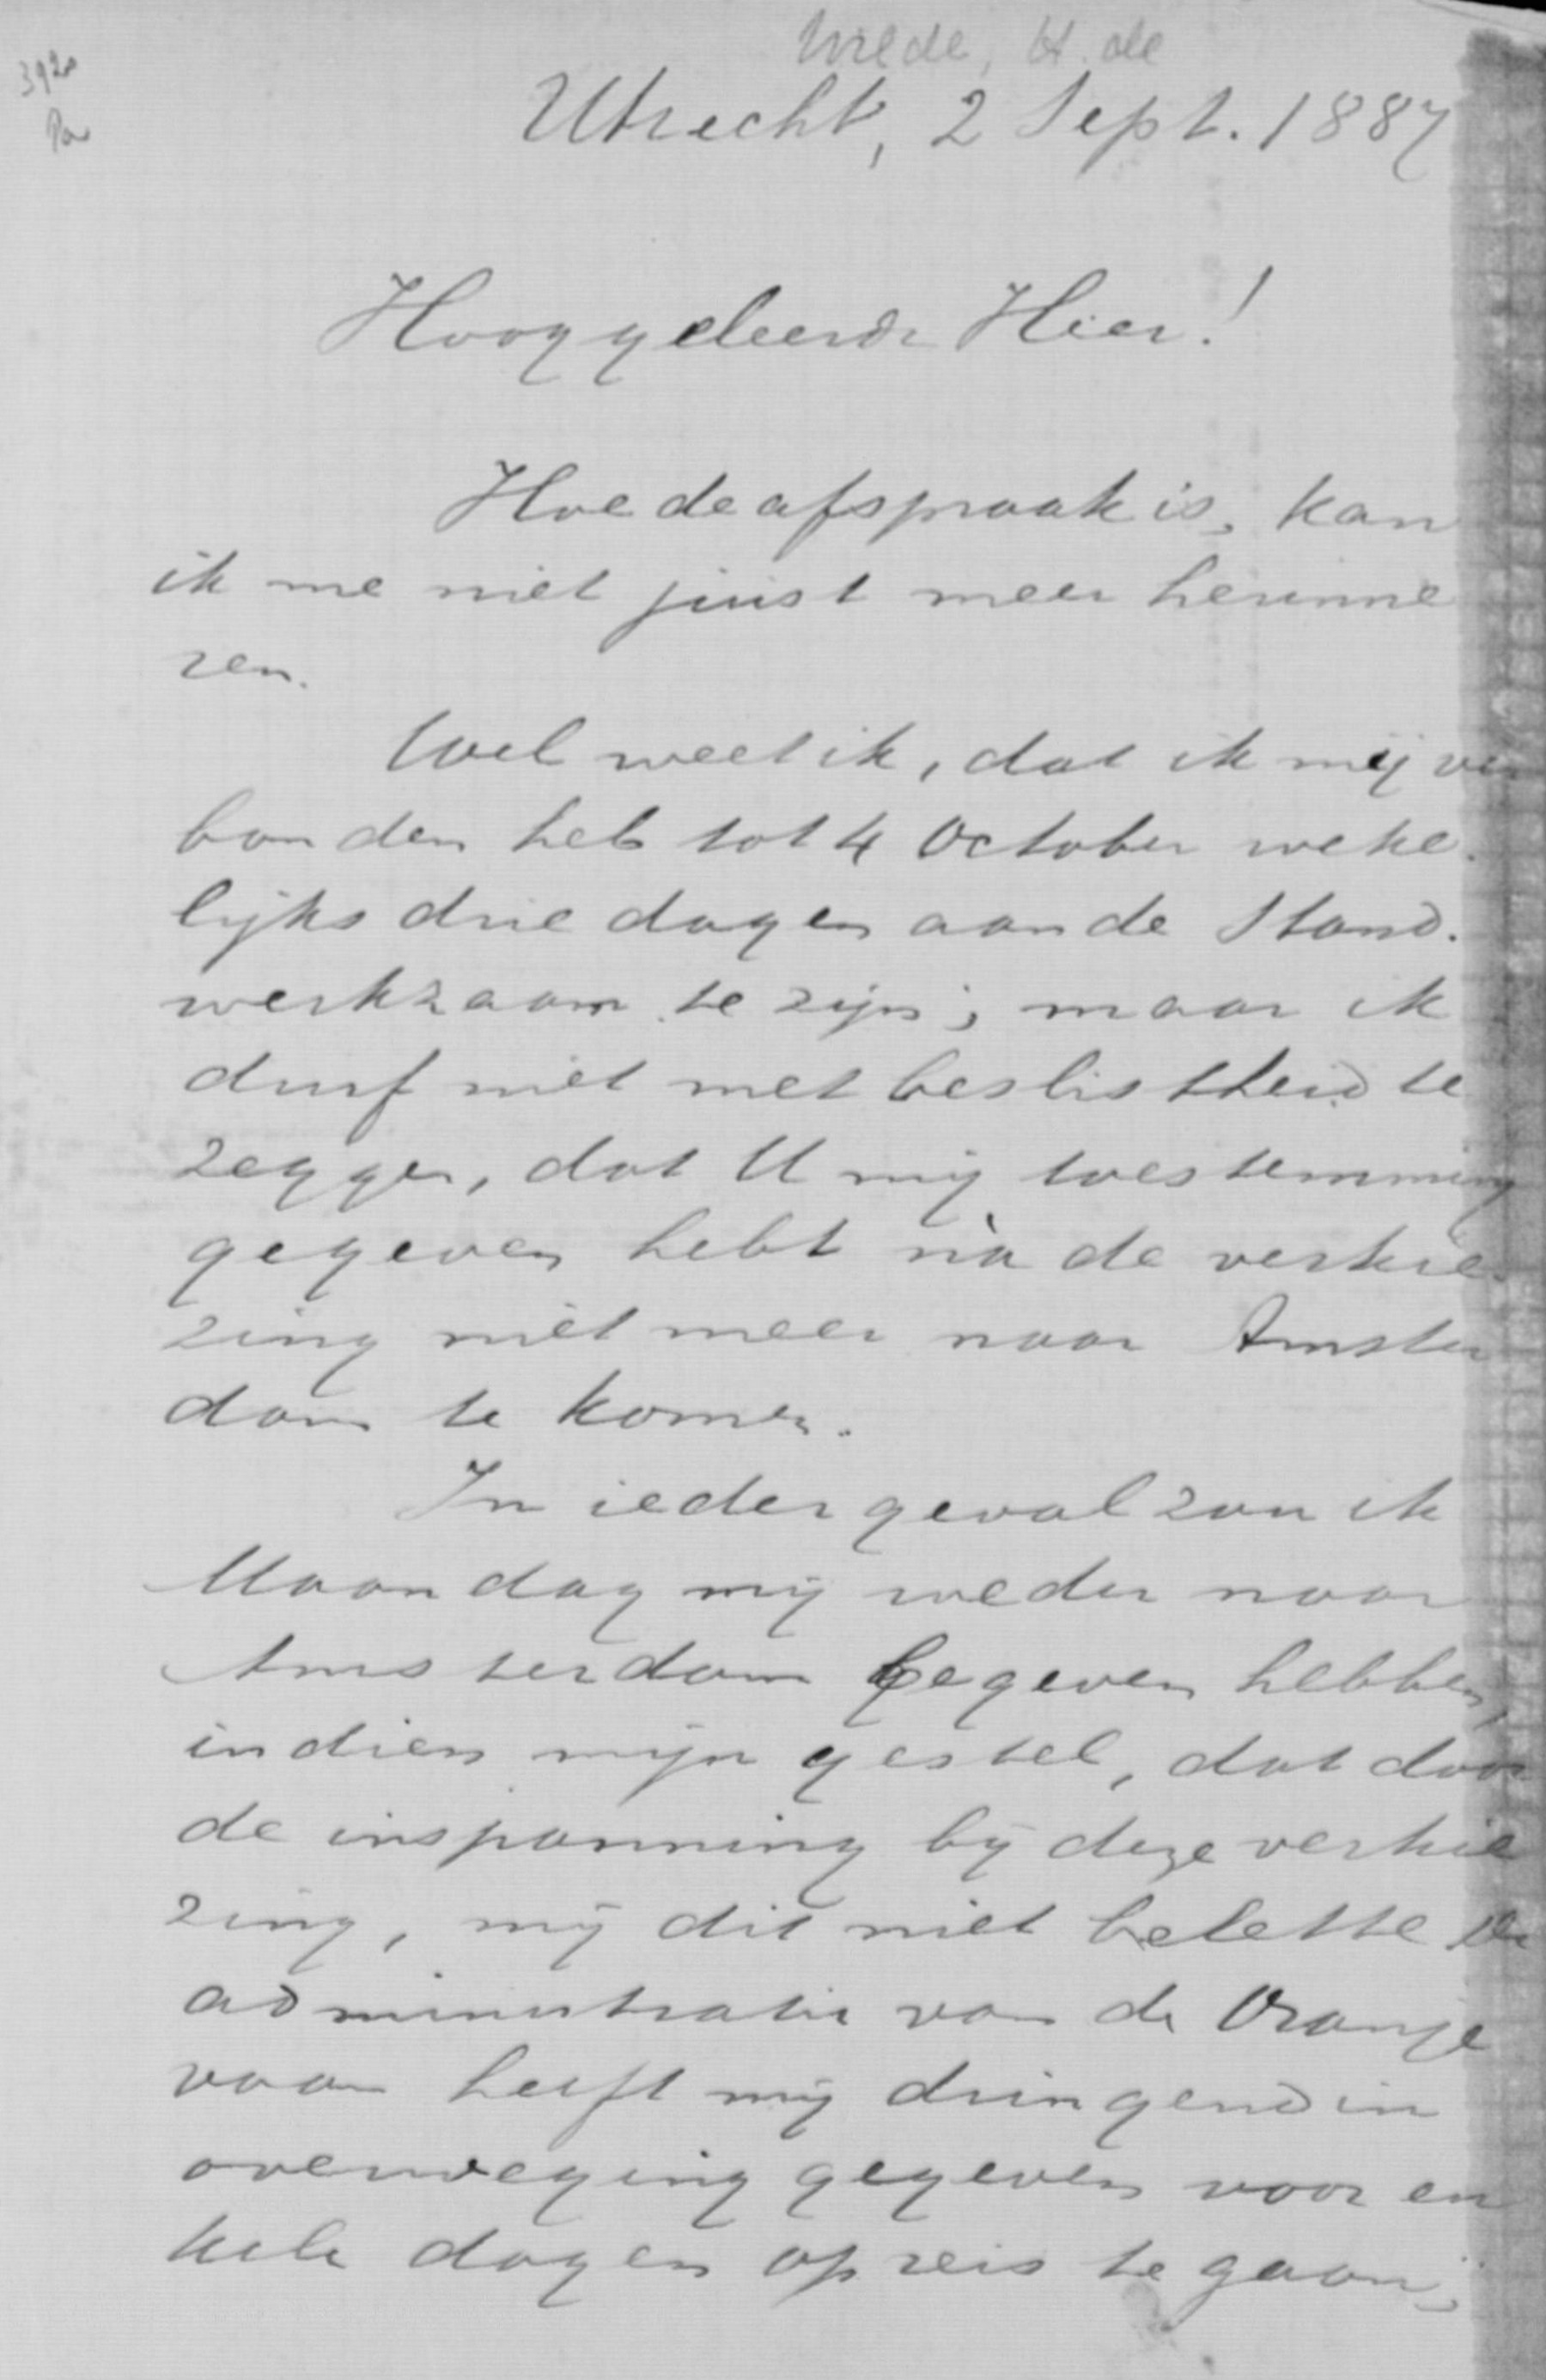 Wilde, H. de
392a
Utrecht, 2 Sept. 1887
Hooggeleerde Heer!
Hoe de afspraak is, kan
ik me niet juist meer herinne
ren.
Wel weet ik, dat ik mij ver
bonden heb tot 4 October weke.
lijks drie dagen aan de Stand.
werkzaam te zijn; maar ik
durf niet met beslistheid te
zeggen, dat U mij toestemming
gegeven hebt nà de verkie
zing niet meer naar Amster
dam te komen.
In ieder geval zou ik
Maandag mij weder naar
Amsterdam begeven hebben,
indien mijn gestel, dat door
de inspanning bij deze verkie
zing, mij dit niet belette De
administratie van de Oranje
vaan heeft mij dringend in
overweging gegeven voor en
kele dagen op reis te gaan;